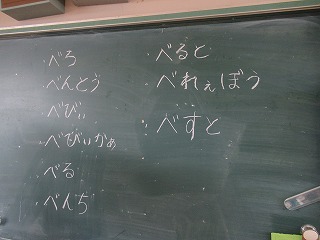 べろ
べんとう
べびぃ
べびぃかぁ
べる
べんち
べると
べれぇぼう
べすと